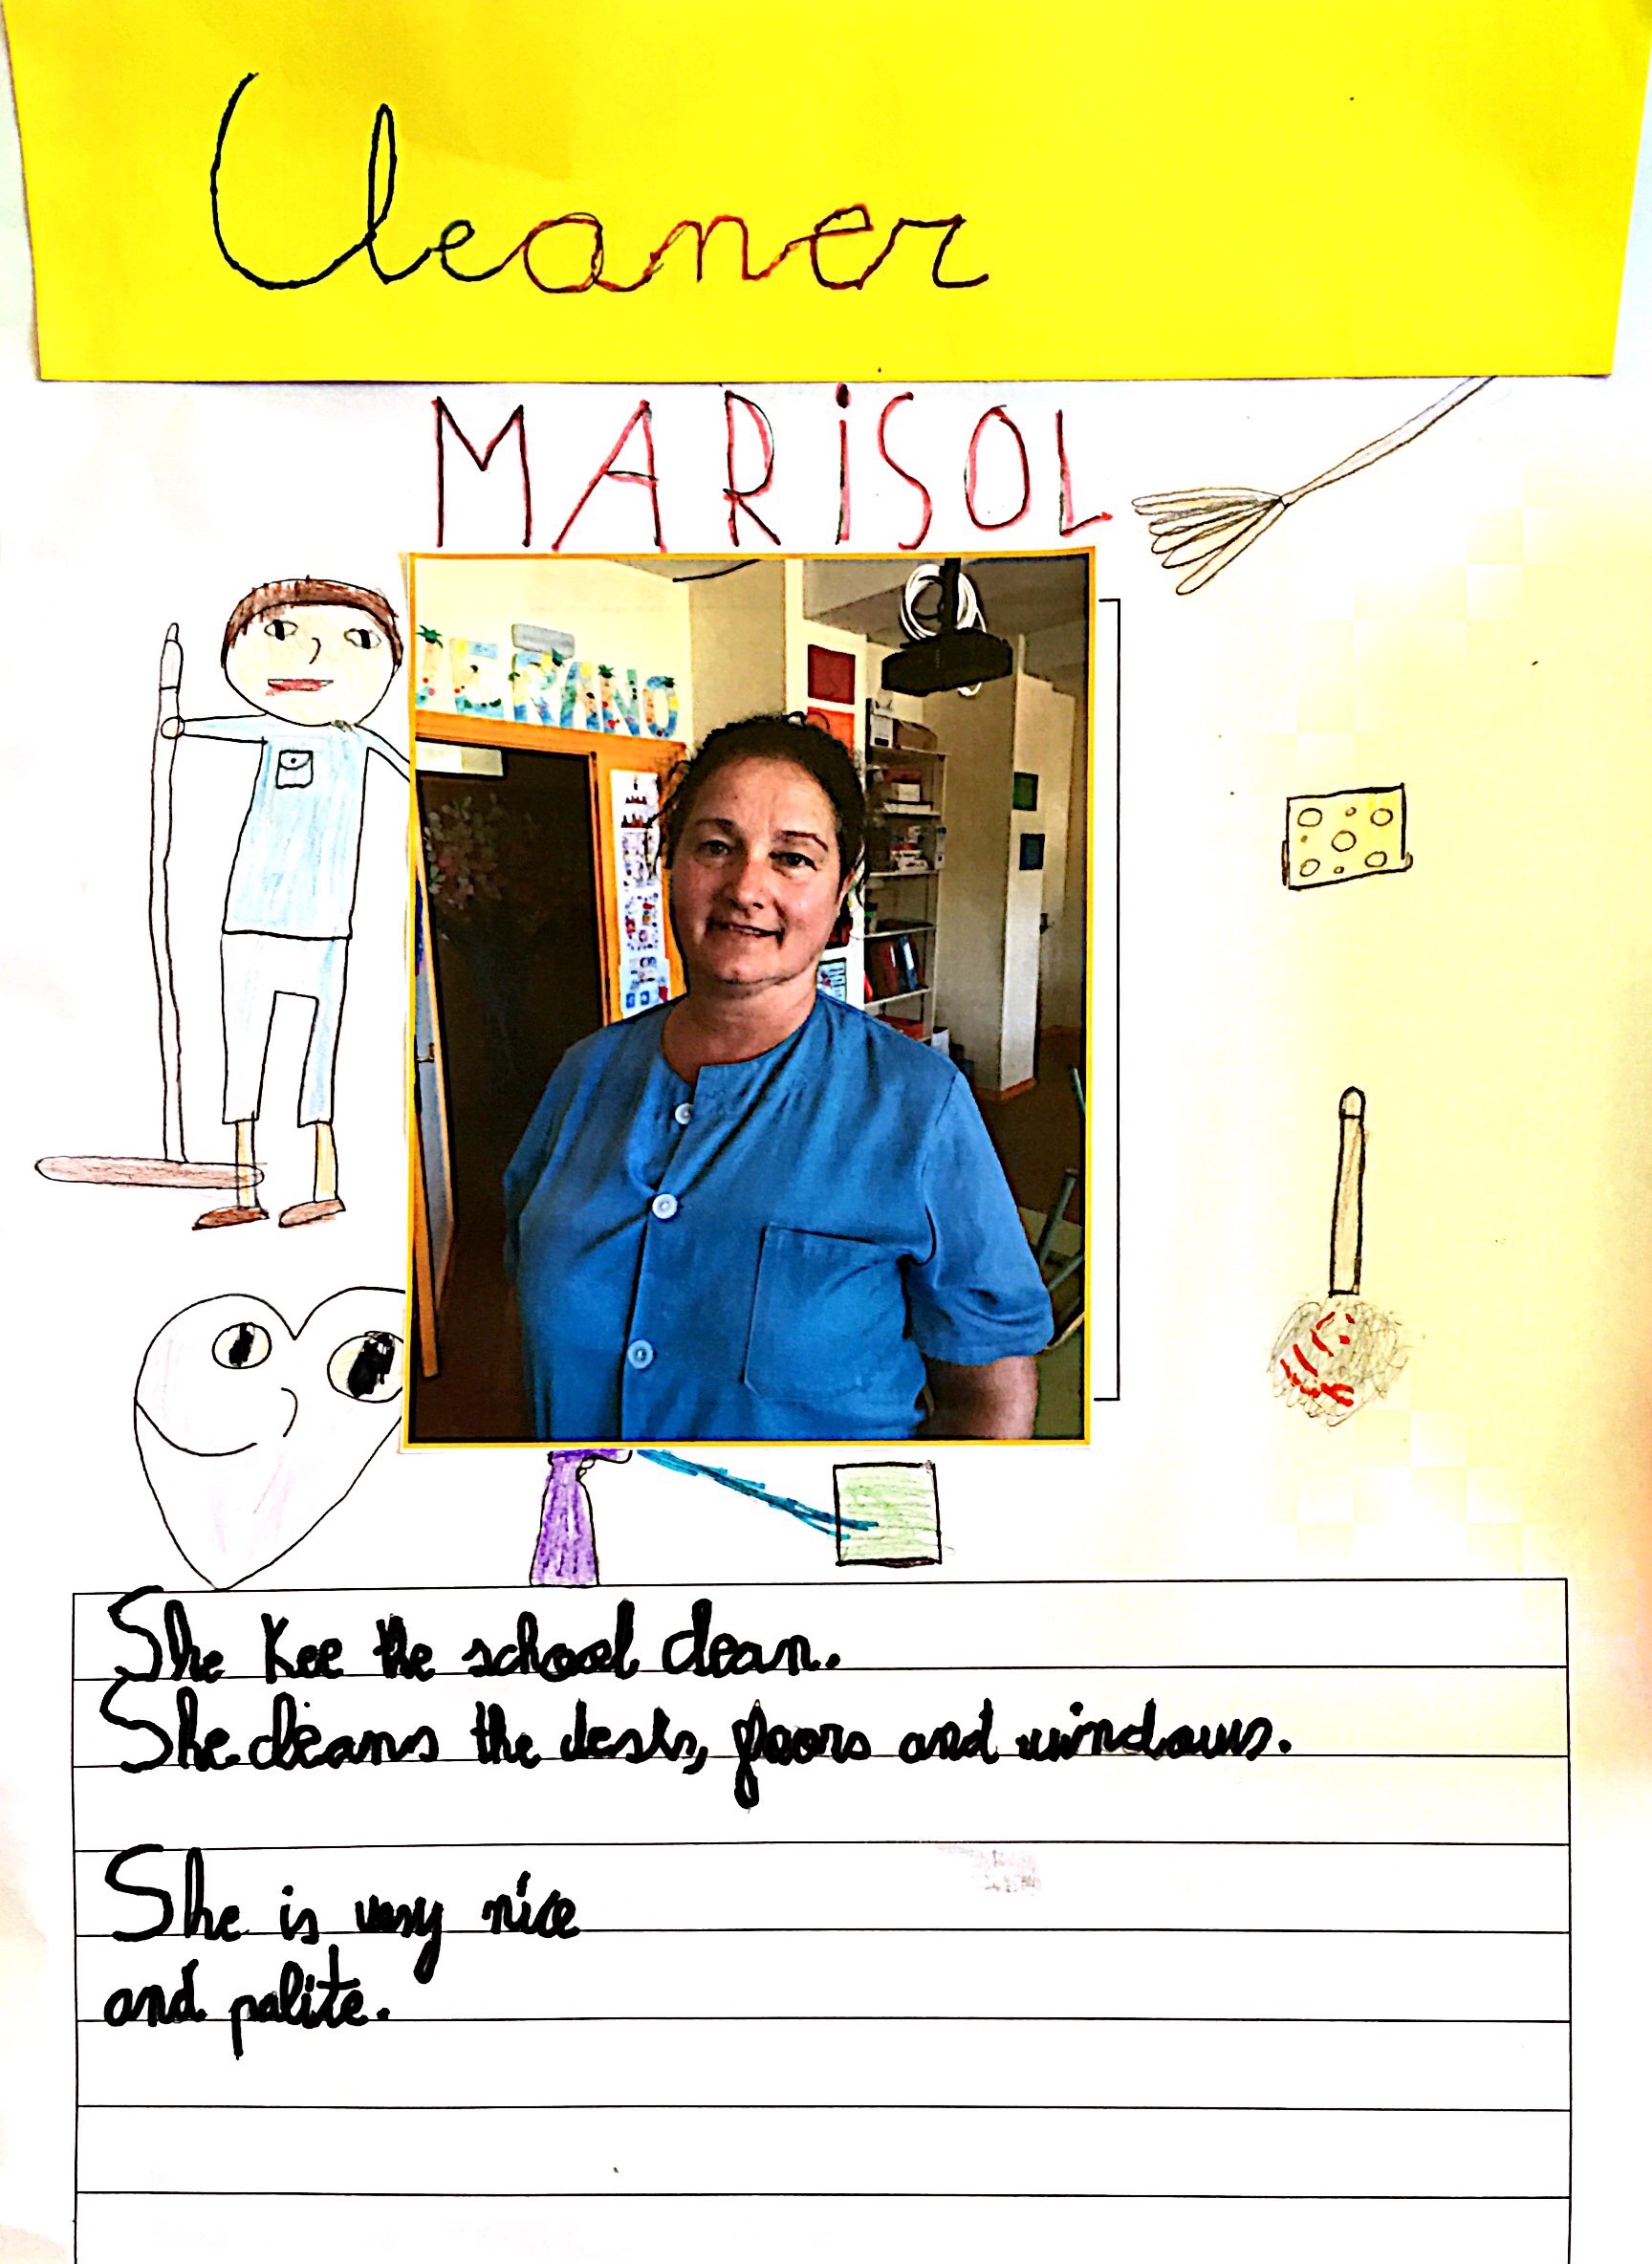 Cleaner
MARiSOL
VERANO
She Kee the school clean.
She cleans the desks, floors and windows.
She is very nice
and polite.